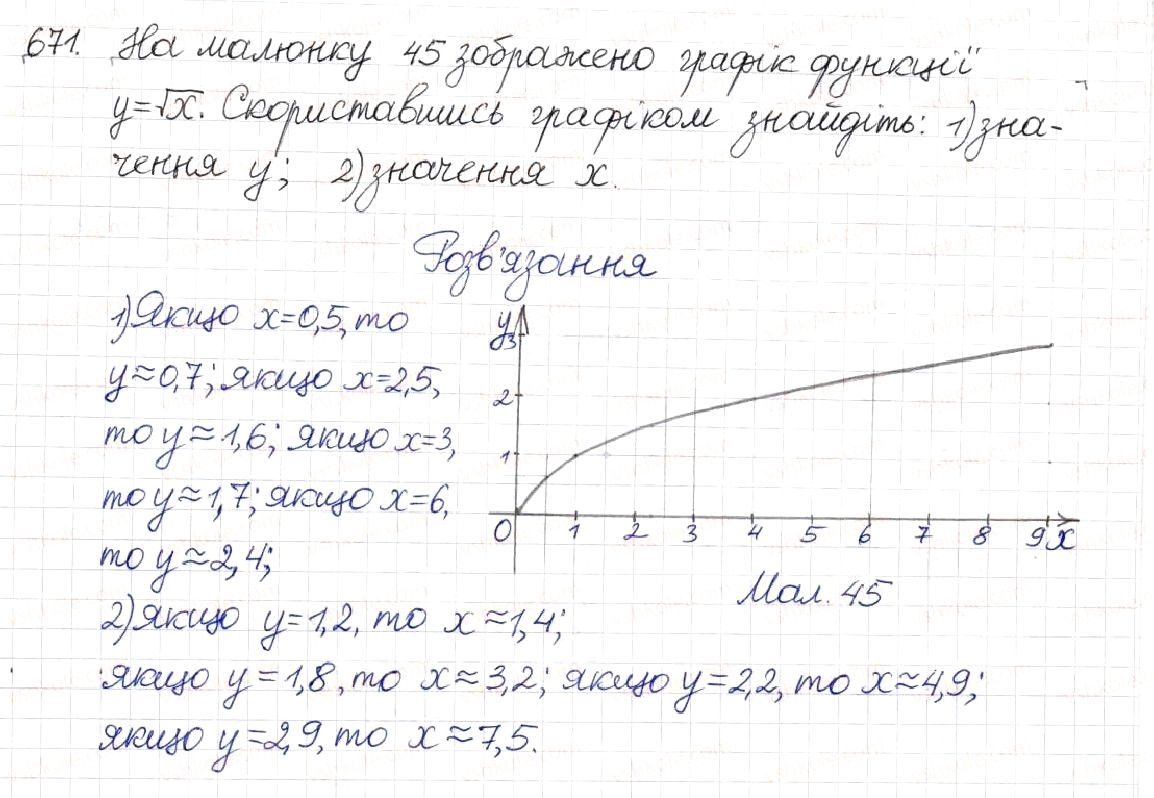 671. На малюнку 45 зображено графік функції
y=√x. Скориставшись графіком знайдіть: 1) зна-
чення y; 2) значення x.
Розв'язання
1) Якщо x=0,5, то
y≈0,7; якщо x=2,5,
то y≈1,6; якщо x=3,
то y≈1,7; якщо x=6,
то y≈2,4;
y
3
2
1
0 1 2 3 4 5 6 7 8 9 x
Мал. 45
2) якщо y=1,2, то x≈1,4;
якщо y=1,8, то x≈3,2; якщо y=2,2, то x≈4,9;
якщо y=2,9, то x≈7,5.